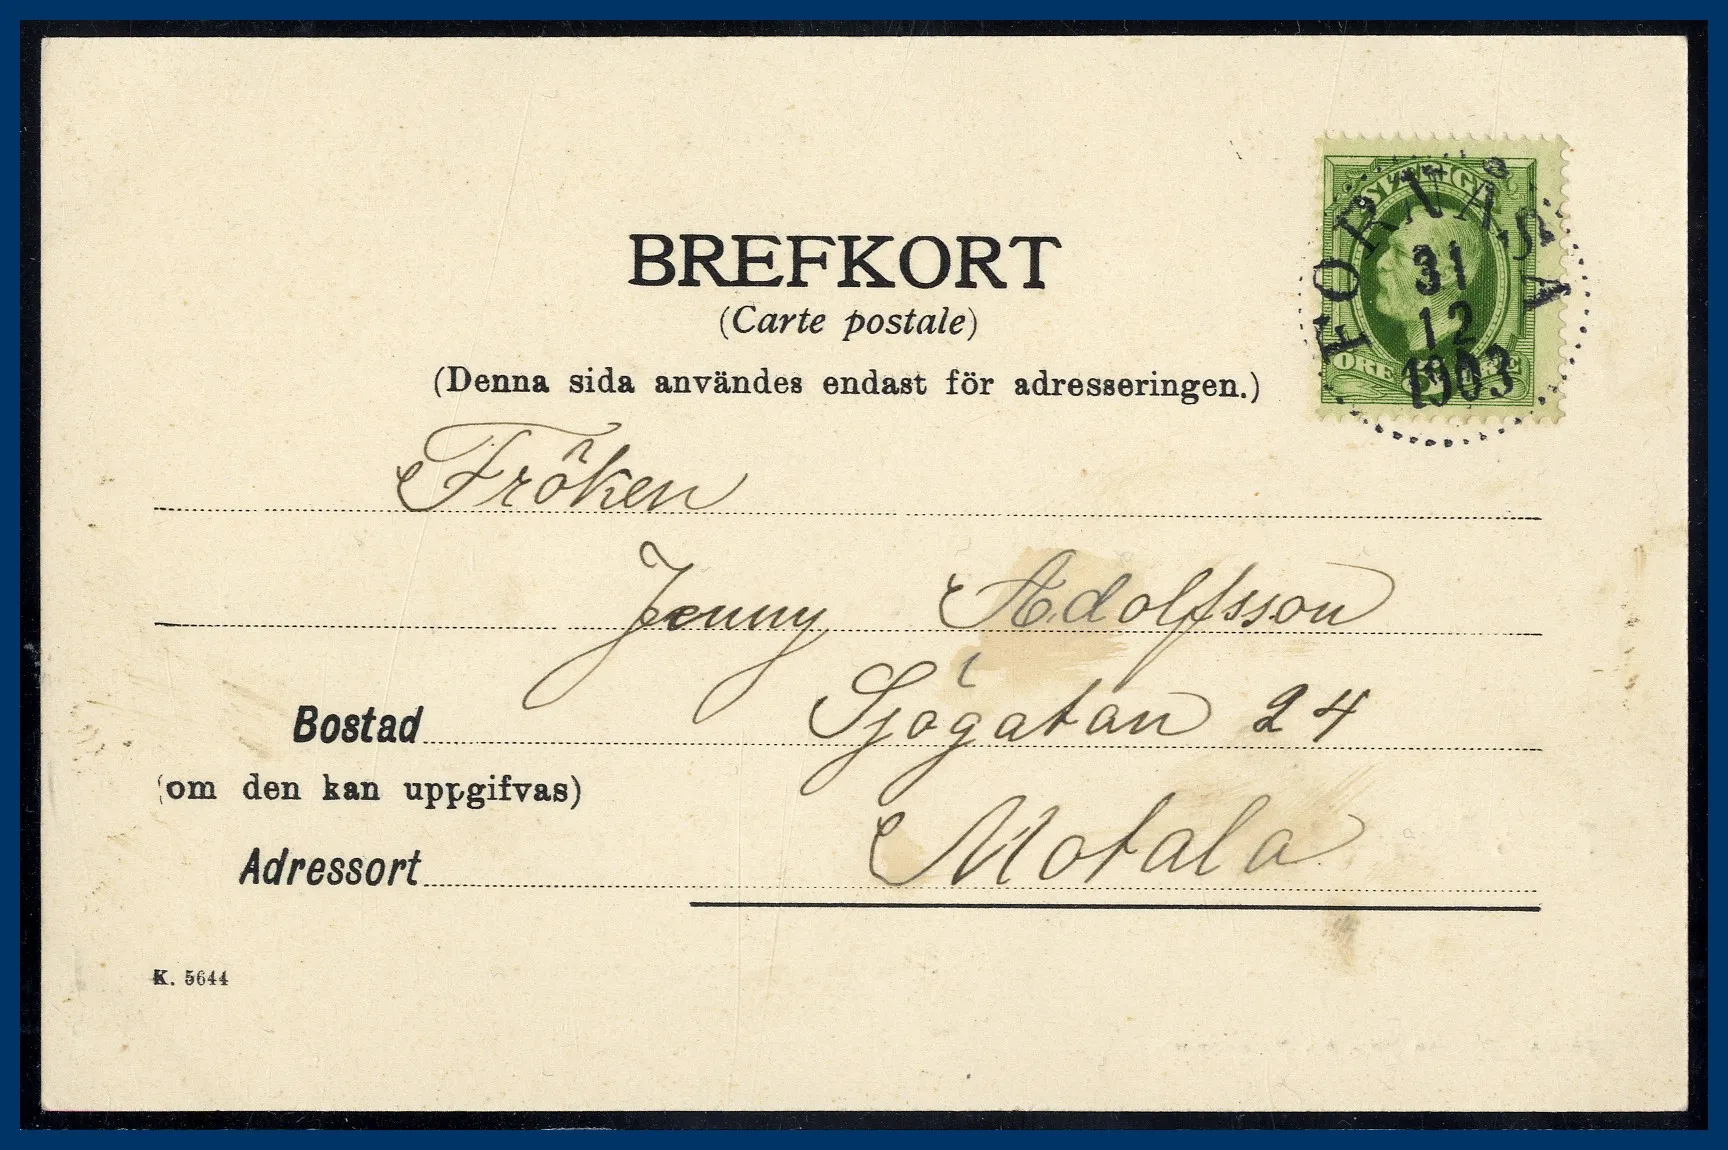 BREFKORT
(Carte postale)
(Denna sida användes endast för adresseringen.)
SVERIGE
FORNÅSA
31
12
1903
ÖRE ÖRE
Fröken
Jenny Adolfsson
Bostad Sjögatan 24
(om den kan uppgifvas)
Adressort Motala
K. 5644